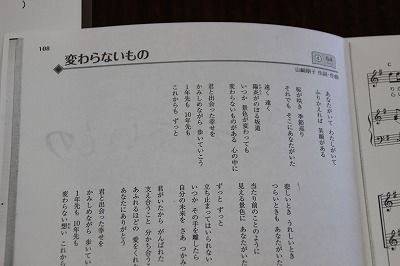 108
変わらないもの
④ 54
山崎朋子 作詞・作曲
あなたがいて わたしがいて
ふりかえれば 笑顔がある
桜が咲き 季節巡り
それでも そこにあなたがいた
遠く 遠く
陽炎がのぼる坂道
いつか 景色が変わっても
変わらないものがある 心の中に
君と出会った幸せを
かみしめながら 歩いていこう
1年先も 10年先も
これからも ずっと
悲しいとき うれしいとき
つらいときも あなたがいた
当たり前のことのように
見える景色に あなたがいた
ずっと ずっと
立ち止まってはいられない
いつか その手を離したら
自分の未来を さあ つかみ
君がいたから がんばれた
支え合うこと 分かち合う
あふれるほどの 愛をくれた
あなたにありがとう
君と出会った幸せを
かみしめながら 歩いてい
1年先も 10年先も
変わらない想い これから